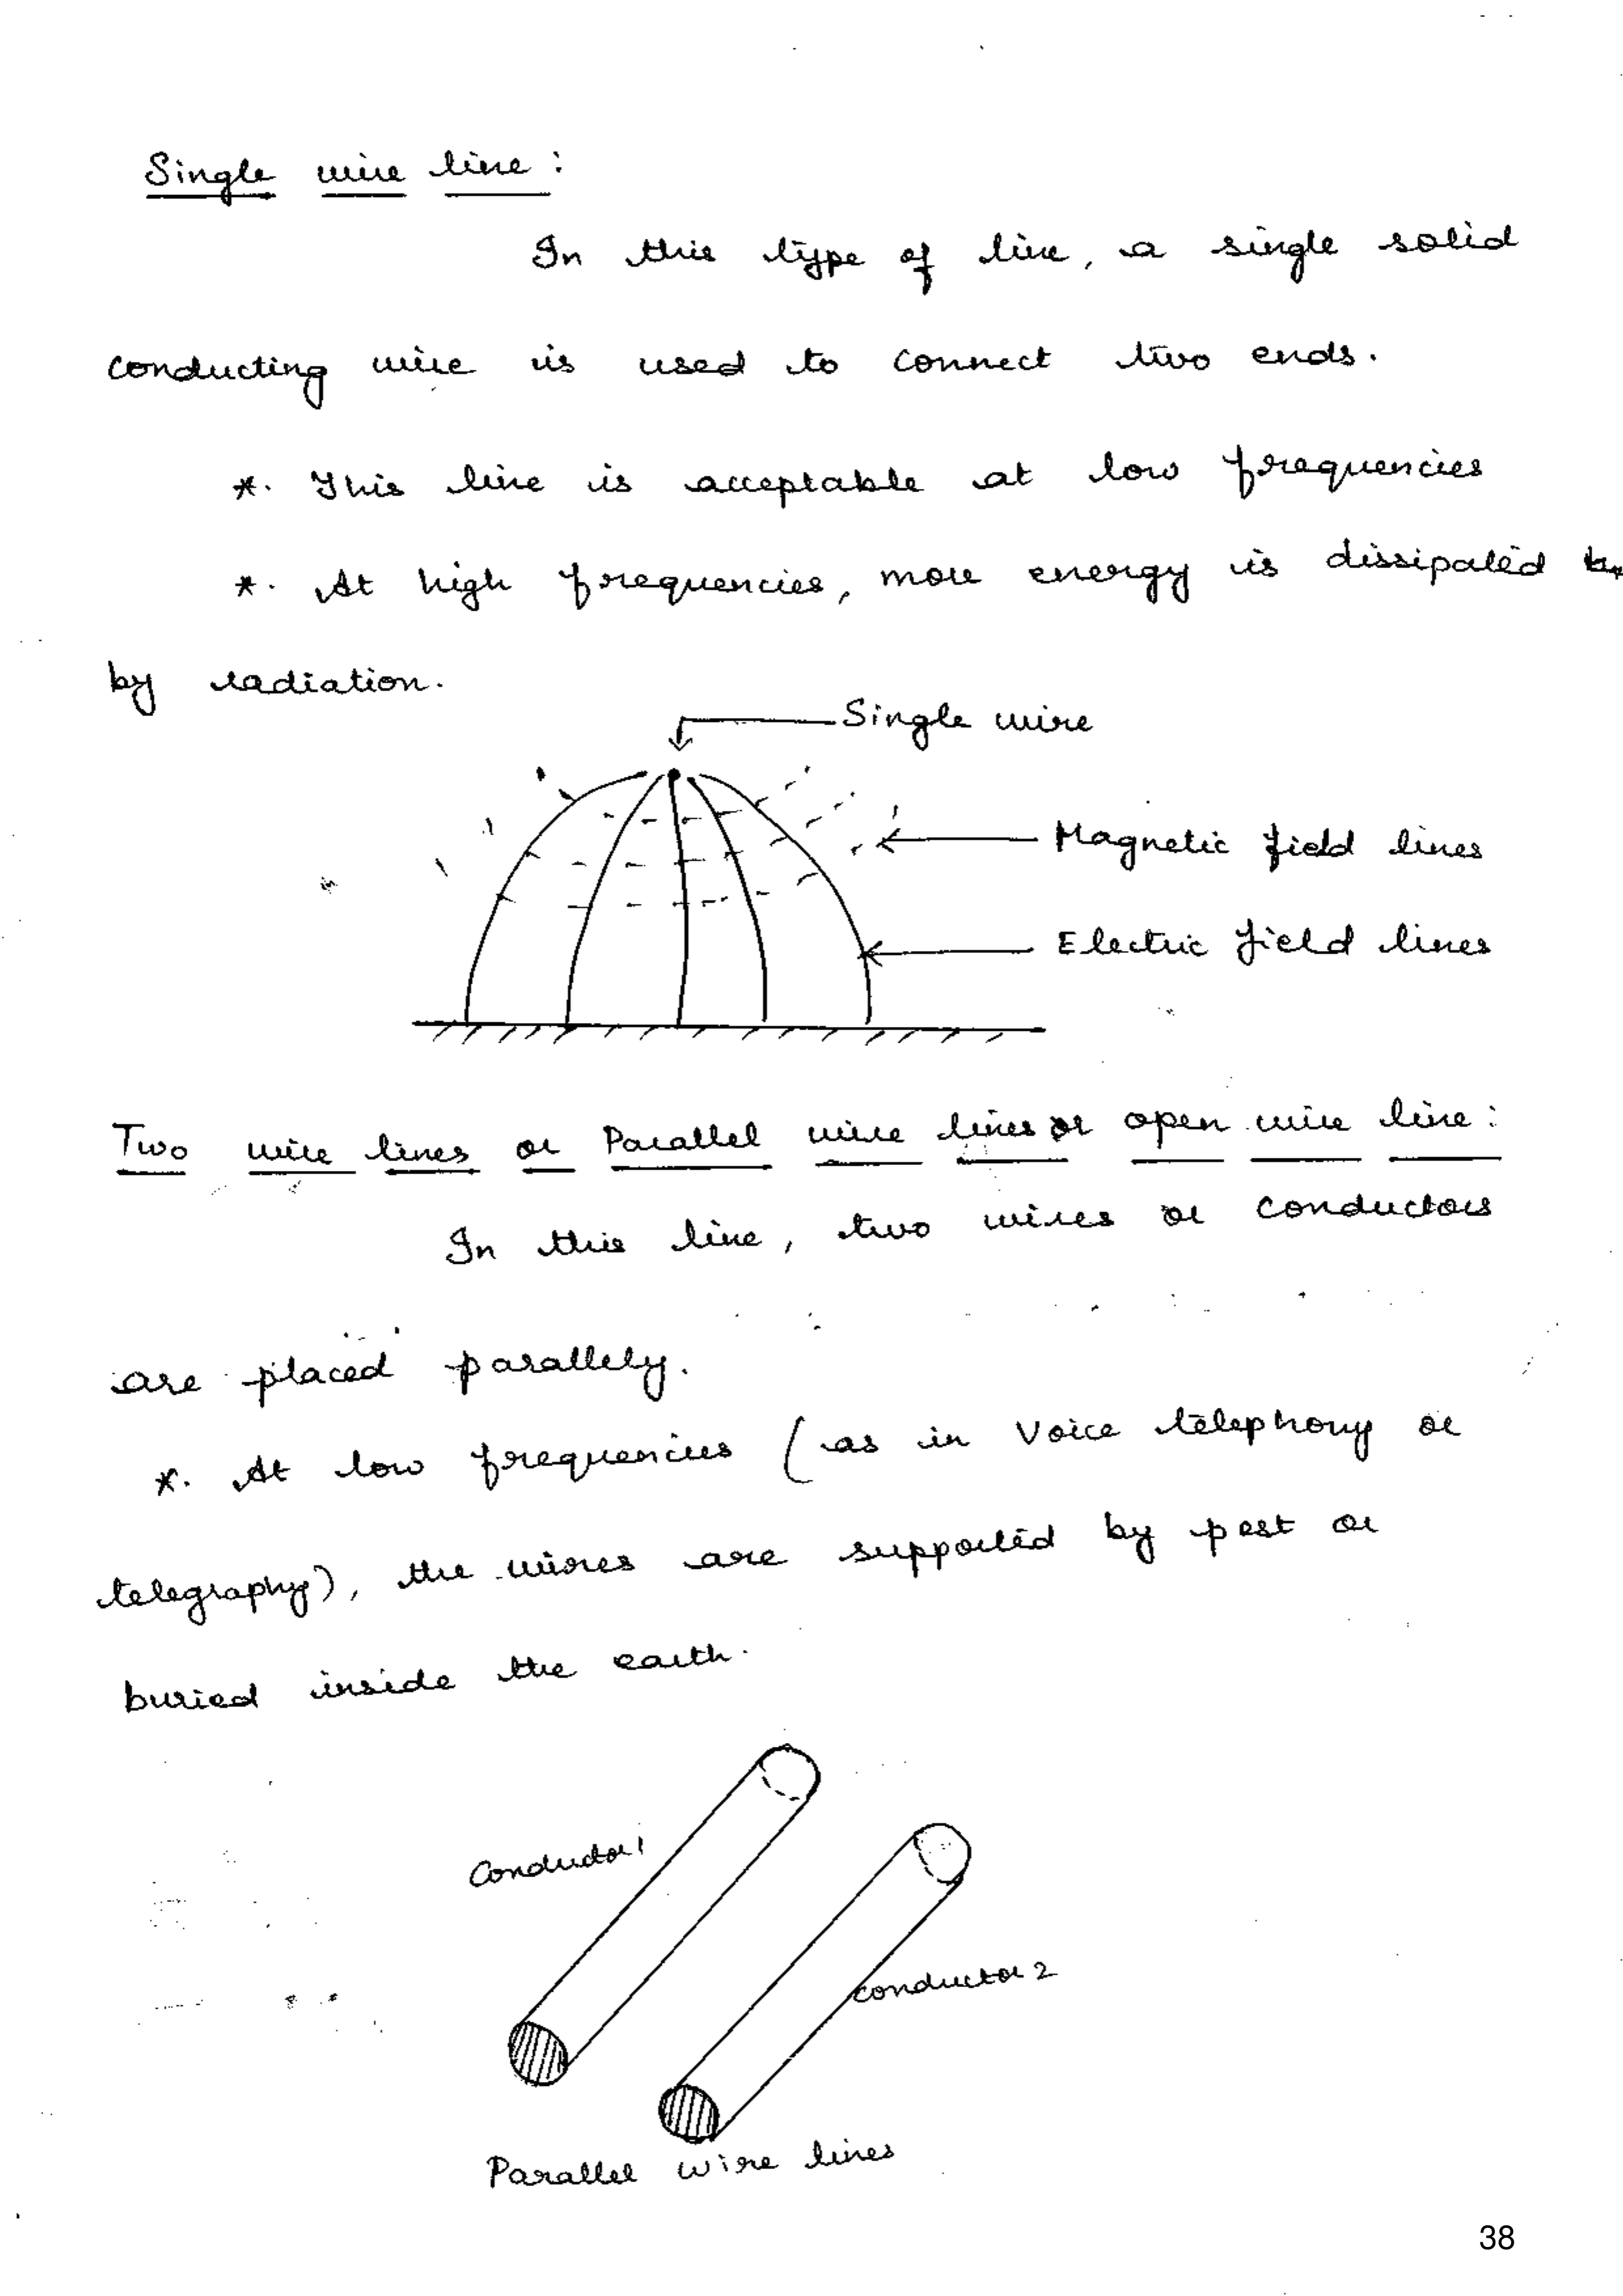 Single wire line :
In this type of line, a single solid
conducting wire is used to connect two ends.
*. This line is acceptable at low frequencies
*. At high frequencies, more energy is dissipated
by radiation.
Single wire
Magnetic field lines
Electric field lines
Two wire lines or Parallel wire lines or open wire line :
In this line, two wires or conductors
are placed parallely.
*. At low frequencies (as in Voice telephony or
telegraphy), the wires are supported by post or
buried inside the earth.
Conductor 1
conductor 2
Parallel wire lines
38